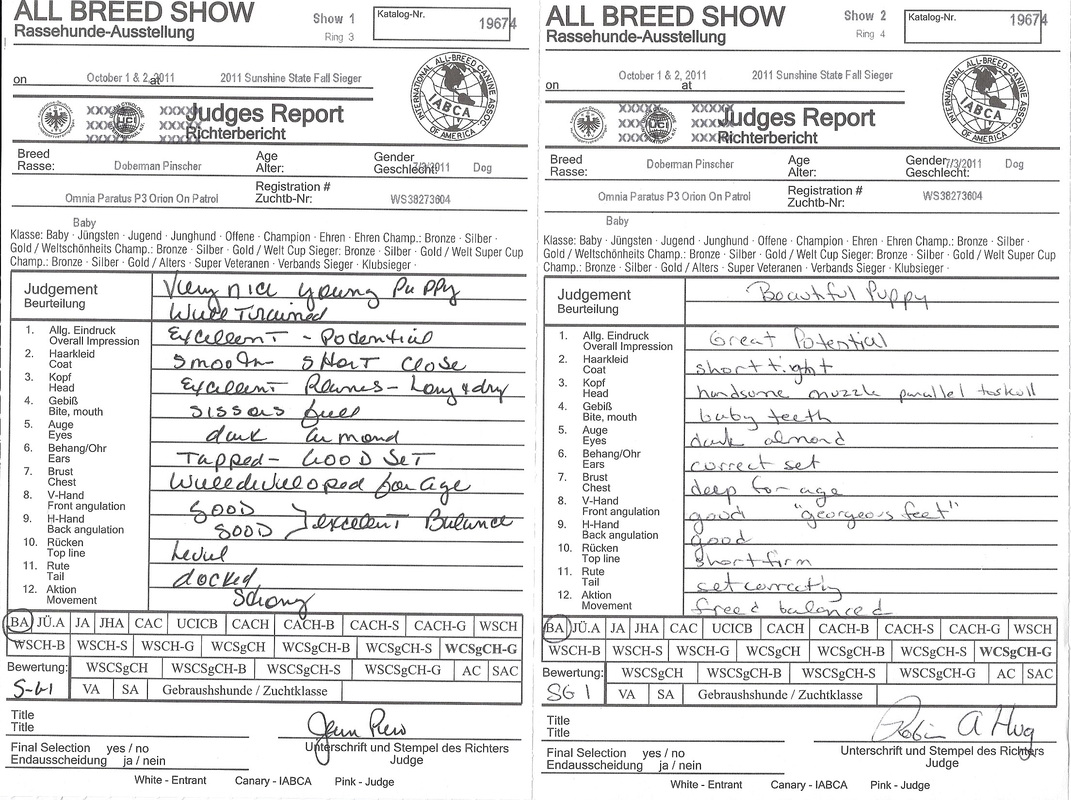 ALL BREED SHOW
Show 1
Katalog-Nr.
19674
Rassehunde-Ausstellung
Ring 3
on October 1 & 2, 2011 at 2011 Sunshine State Fall Sieger
INTERNATIONAL ALL-BREED CANINE ASSOC. OF AMERICA
IABCA
XXXX XXXX
XXXX UCI XXXX
XXXX XXXX
Judges Report
Richterbericht
Breed Doberman Pinscher Age Gender 7/3/2011 Dog
Rasse: Alter: Geschlecht:
Omnia Paratus P3 Orion On Patrol Registration # WS38273604
Zuchtb-Nr:
Baby
Klasse: Baby · Jüngsten · Jugend · Junghund · Offene · Champion · Ehren · Ehren Champ.: Bronze · Silber ·
Gold / Weltschönheits Champ.: Bronze · Silber · Gold / Welt Cup Sieger: Bronze · Silber · Gold / Welt Super Cup
Champ.: Bronze · Silber · Gold / Alters · Super Veteranen · Verbands Sieger · Klubsieger ·
Judgement Very nice young Puppy
Beurteilung Well Trained
1. Allg. Eindruck Excellent - Podential
Overall Impression
2. Haarkleid Smooth SHORT Close
Coat
3. Kopf Excellent Planes - Long & dry
Head
4. Gebiß Sissors full
Bite, mouth
5. Auge dark Almond
Eyes
6. Behang/Ohr Tapped - GOOD SET
Ears
7. Brust Welldeveloped for Age
Chest
8. V-Hand GOOD
Front angulation
9. H-Hand GOOD } excellent Balance
Back angulation
10. Rücken Level
Top line
11. Rute docked
Tail
12. Aktion Strong
Movement
BA JÜ.A JA JHA CAC UCICB CACH CACH-B CACH-S CACH-G WSCH
WSCH-B WSCH-S WSCH-G WCSgCH WCSgCH-B WCSgCH-S WCSgCH-G
Bewertung: WSCSgCH WSCSgCH-B WSCSgCH-S WSCSgCH-G AC SAC
S-G1 VA SA Gebraushshunde / Zuchtklasse
Title
Title
Final Selection yes / no
Endausscheidung ja / nein
Unterschrift und Stempel des Richters
Judge
White - Entrant Canary - IABCA Pink - Judge
ALL BREED SHOW
Show 2
Katalog-Nr.
19674
Rassehunde-Ausstellung
Ring 4
on October 1 & 2, 2011 at 2011 Sunshine State Fall Sieger
INTERNATIONAL ALL-BREED CANINE ASSOC. OF AMERICA
IABCA
XXXX XXXX
XXXX UCI XXXX
XXXX XXXX
Judges Report
Richterbericht
Breed Doberman Pinscher Age Gender 7/3/2011 Dog
Rasse: Alter: Geschlecht:
Omnia Paratus P3 Orion On Patrol Registration # WS38273604
Zuchtb-Nr:
Baby
Klasse: Baby · Jüngsten · Jugend · Junghund · Offene · Champion · Ehren · Ehren Champ.: Bronze · Silber ·
Gold / Weltschönheits Champ.: Bronze · Silber · Gold / Welt Cup Sieger: Bronze · Silber · Gold / Welt Super Cup
Champ.: Bronze · Silber · Gold / Alters · Super Veteranen · Verbands Sieger · Klubsieger ·
Judgement Beautiful Puppy
Beurteilung
1. Allg. Eindruck Great Potential
Overall Impression
2. Haarkleid short tight
Coat
3. Kopf handsome muzzle parallel toskull
Head
4. Gebiß baby teeth
Bite, mouth
5. Auge dark almond
Eyes
6. Behang/Ohr correct set
Ears
7. Brust deep for age
Chest
8. V-Hand good "georgeous feet"
Front angulation
9. H-Hand good
Back angulation
10. Rücken short firm
Top line
11. Rute set correctly
Tail
12. Aktion free & balanced
Movement
BA JÜ.A JA JHA CAC UCICB CACH CACH-B CACH-S CACH-G WSCH
WSCH-B WSCH-S WSCH-G WCSgCH WCSgCH-B WCSgCH-S WCSgCH-G
Bewertung: WSCSgCH WSCSgCH-B WSCSgCH-S WSCSgCH-G AC SAC
SG 1 VA SA Gebraushshunde / Zuchtklasse
Title
Title
Robin A Hug
Final Selection yes / no
Endausscheidung ja / nein
Unterschrift und Stempel des Richters
Judge
White - Entrant Canary - IABCA Pink - Judge